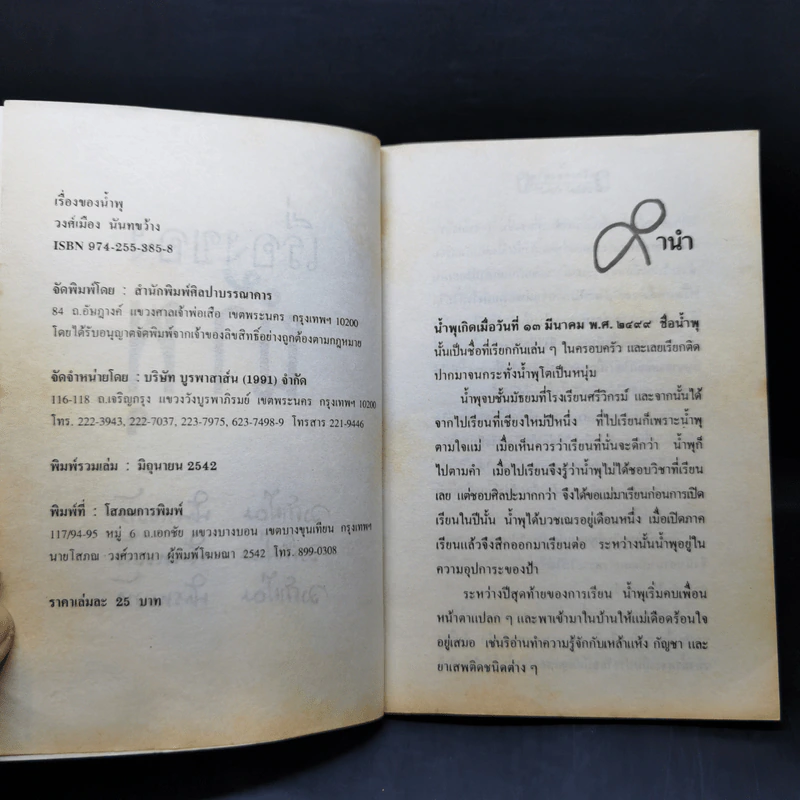 เรื่องของน้ำพุ
วงศ์เมือง นันทขว้าง
ISBN 974-255-385-8
จัดพิมพ์โดย : สำนักพิมพ์ศิลปาบรรณาคาร
84 ถ.อัษฎางค์ แขวงศาลเจ้าพ่อเสือ เขตพระนคร กรุงเทพฯ 10200
โดยได้รับอนุญาตจัดพิมพ์จากเจ้าของลิขสิทธิ์อย่างถูกต้องตามกฎหมาย
จัดจำหน่ายโดย : บริษัท บูรพาสาส์น (1991) จำกัด
116-118 ถ.เจริญกรุง แขวงวังบูรพาภิรมย์ เขตพระนคร กรุงเทพฯ 10200
โทร. 222-3943, 222-7037, 223-7975, 623-7498-9 โทรสาร 221-9446
พิมพ์รวมเล่ม : มิถุนายน 2542
พิมพ์ที่ : โสภณการพิมพ์
117/94-95 หมู่ 6 ถ.เอกชัย แขวงบางบอน เขตบางขุนเทียน กรุงเทพฯ
นายโสภณ วงศ์วาสนา ผู้พิมพ์โฆษณา 2542 โทร. 899-0308
ราคาเล่มละ 25 บาท
คำนำ
น้ำพุเกิดเมื่อวันที่ ๑๓ มีนาคม พ.ศ. ๒๔๙๙ ชื่อน้ำพุ
นั้นเป็นชื่อที่เรียกกันเล่น ๆ ในครอบครัว และเลยเรียกติด
ปากมาจนกระทั่งน้ำพุโตเป็นหนุ่ม
น้ำพุจบชั้นมัธยมที่โรงเรียนศรีวิกรม์ และจากนั้นได้
จากไปเรียนที่เชียงใหม่ปีหนึ่ง ที่ไปเรียนก็เพราะน้ำพุ
ตามใจแม่ เมื่อเห็นควรว่าเรียนที่นั่นจะดีกว่า น้ำพุก็
ไปตามคำ เมื่อไปเรียนจึงรู้ว่าน้ำพุไม่ได้ชอบวิชาที่เรียน
เลย แต่ชอบศิลปะมากกว่า จึงได้ขอแม่มาเรียนก่อนการเปิด
เรียนในปีนั้น น้ำพุได้บวชเณรอยู่เดือนหนึ่ง เมื่อเปิดภาค
เรียนแล้วจึงสึกออกมาเรียนต่อ ระหว่างนั้นน้ำพุอยู่ใน
ความอุปการะของป้า
ระหว่างปีสุดท้ายของการเรียน น้ำพุเริ่มคบเพื่อน
หน้าตาแปลก ๆ และพาเข้ามาในบ้านให้แม่เดือดร้อนใจ
อยู่เสมอ เช่นริอ่านทำความรู้จักกับเหล้าแห้ง กัญชา และ
ยาเสพติดชนิดต่าง ๆ